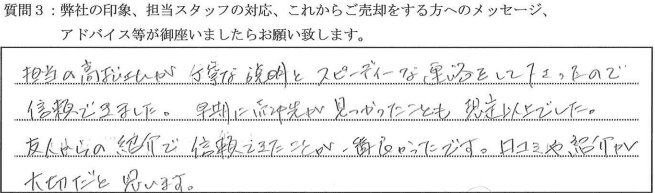 質問３：弊社の印象、担当スタッフの対応、これからご売却をする方へのメッセージ、
アドバイス等が御座いましたらお願い致します。
担当の高さんが丁寧な説明とスピーディーな連絡をして下さったので
信頼できました。早期に売却先が見つかったことも想定以上でした。
友人からの紹介で信頼できたことが一番良かったです。口コミや紹介が
大切だと思います。